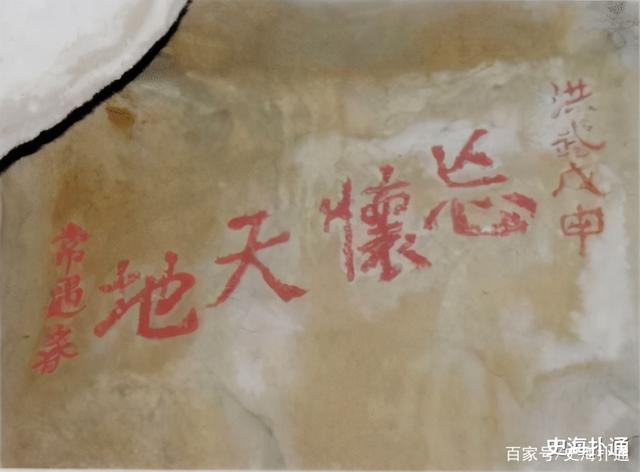 洪武戊申
忘懷天地
常遇春
史海扑通
百家号/史海扑通